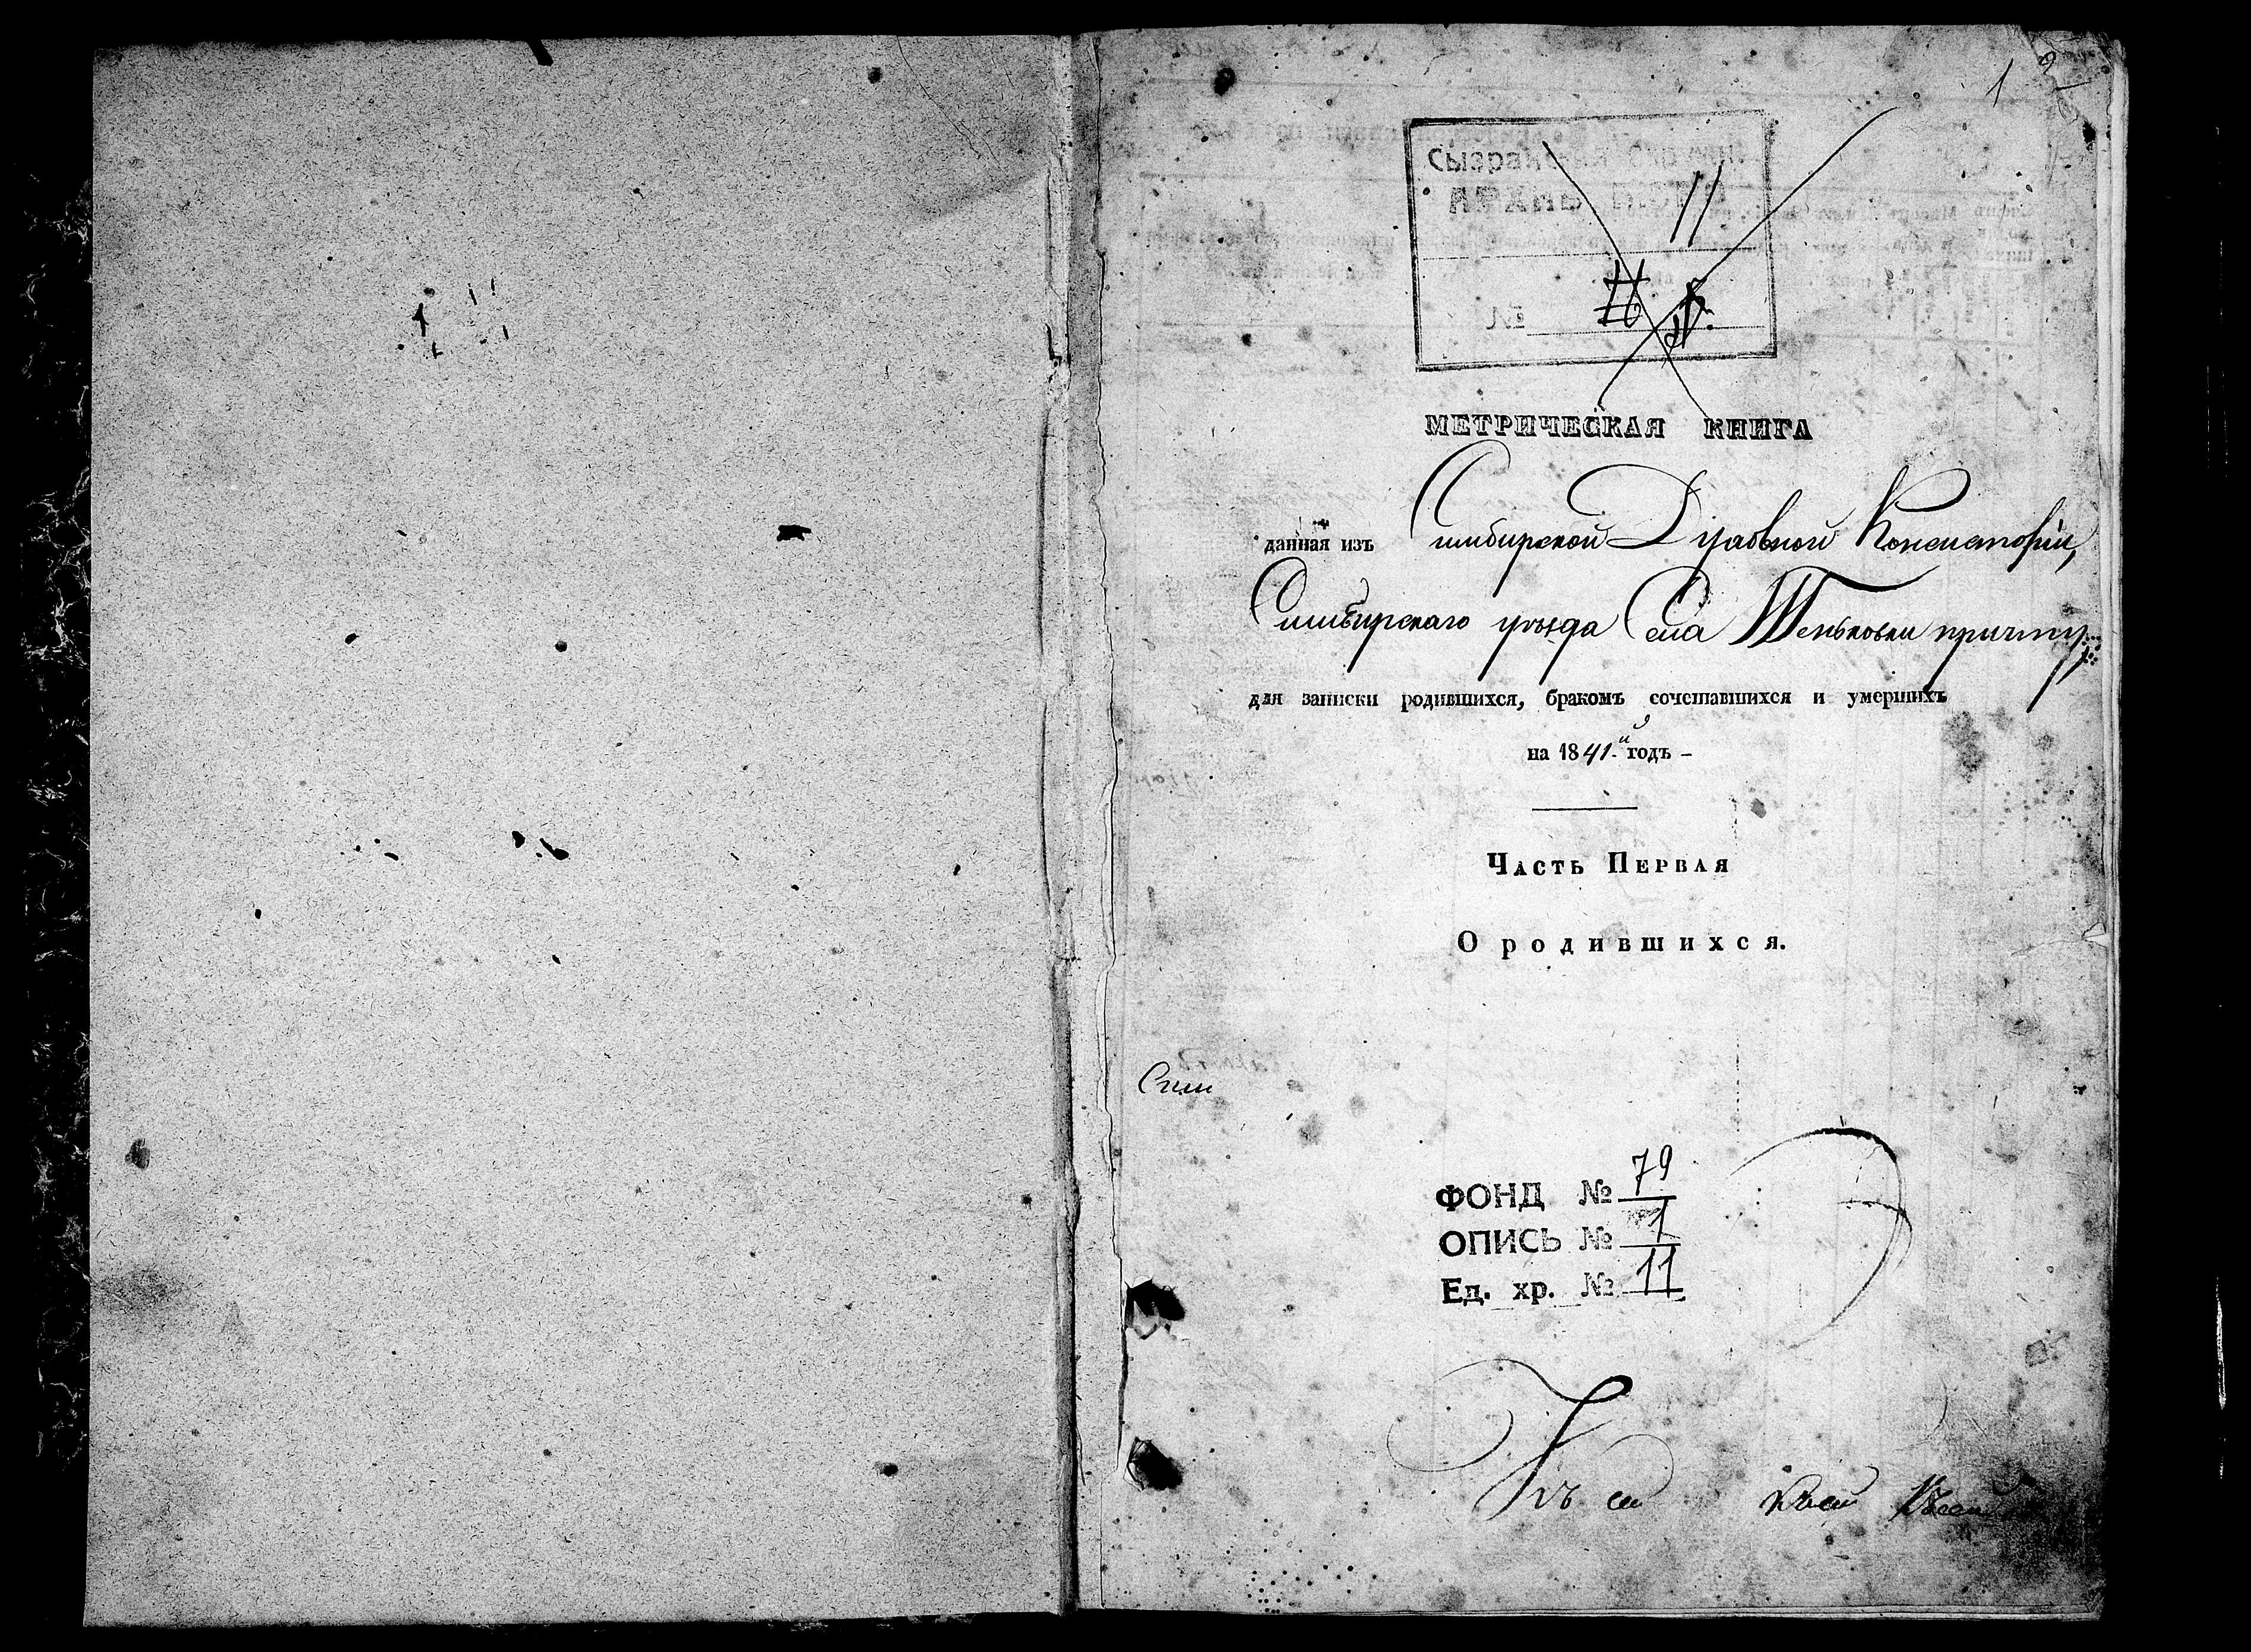 1
11
№
МЕТРИЧЕСКАЯ КНИГА
данная изъ Симбирской Духовной Консисторіи,
Симбирскаго уѣзда Села Теньковки причту,
для записки родившихся, бракомъ сочетавшихся и умершихъ
на 1841-й годъ –
Часть Первая
О родившихся.
Сим
ФОНД № 79
ОПИСЬ № 1
Ед. хр. № 11